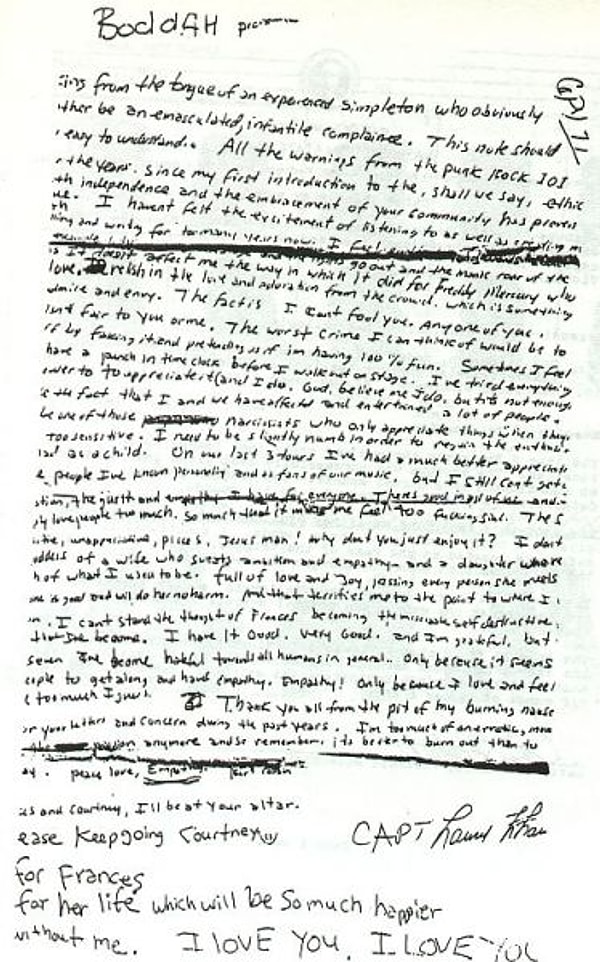 BoddAH
from the tongue of an experienced simpleton who obviously
be an emasculated, infantile complainee. This note should
easy to understand. All the warnings from the punk rock 101
the years. Since my first introduction to the, shall we say, ethic
independence and the embracement of your community has proven
I havent felt the excitement of listening to as well as creating
and writing for too many years now. I feel
lights go out and the manic roar of the
it doesnt affect me the way in which it did for Freddy Mercury who
love, relish in the love and adoration from the crowd. which is something
admire and envy. The fact is I cant fool you. Any one of you.
isnt fair to you or me. The worst crime I can think of would be to
by faking it and pretending as if im having 100% fun. Sometimes I feel
have a punch in time clock before I walk out on stage. I've tried everything
to appreciate it (and I do. God, believe me I do, but its not enough
the fact that I and we have affected and entertained a lot of people.
be one of those narcissists who only appreciate things when they
too sensitive. I need to be slightly numb in order to regain the
as a child. On our last 3 tours I've had a much better
people I've known personally and as fans of our music, but I still cant get
the guilt and empathy I have for everyone. Theres good in all of us and
love people too much. So much that it me feel too fucking sad. The S
unappreciative, pisces, Jesus man! why dont you just enjoy it? I dont
of a wife who sweats ambition and empathy and a daughter who
of what I used to be. full of love and joy, every person she meets
is good and will do her no harm. And that terrifies me to the point to where I
I cant stand the thought of Frances becoming the miserable self destructive,
become. I have it Good. Very Good. and I'm grateful, but
seven Ive become hateful towards all humans in general.. Only because it seems
to get along and have empathy. Empathy! Only because I love and feel
too much I guess. Thank you all from the pit of my burning
your letters and concern during the past years. I'm too much of an erratic,
the passion anymore and so remember, its better to burn out than to
peace love, Empathy.
and Courtney, I'll be at your altar.
Keep going Courtney
for Frances
for her life which will be so much happier
without me. I LOVE YOU. I LOVE YOU